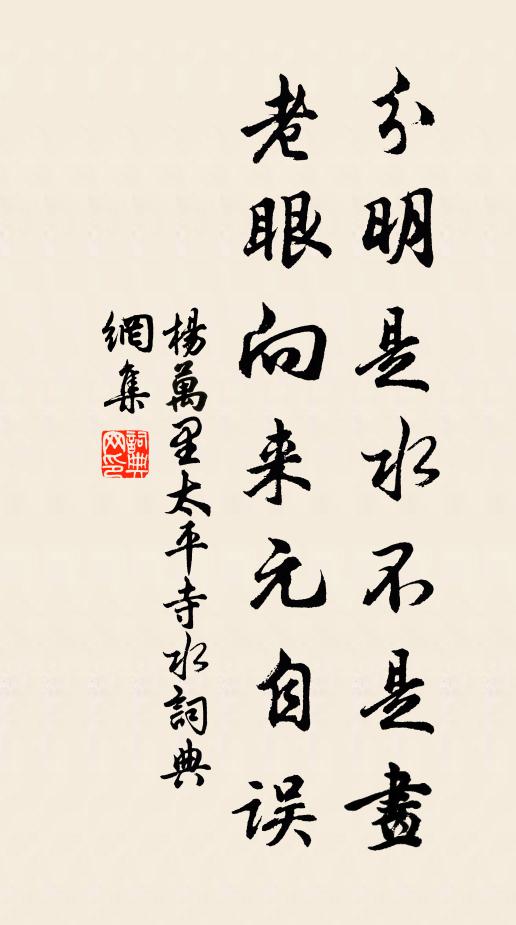 分明是水不是畫
老眼向来元自误
楊萬里太平寺水詞典
網集
詞典網印